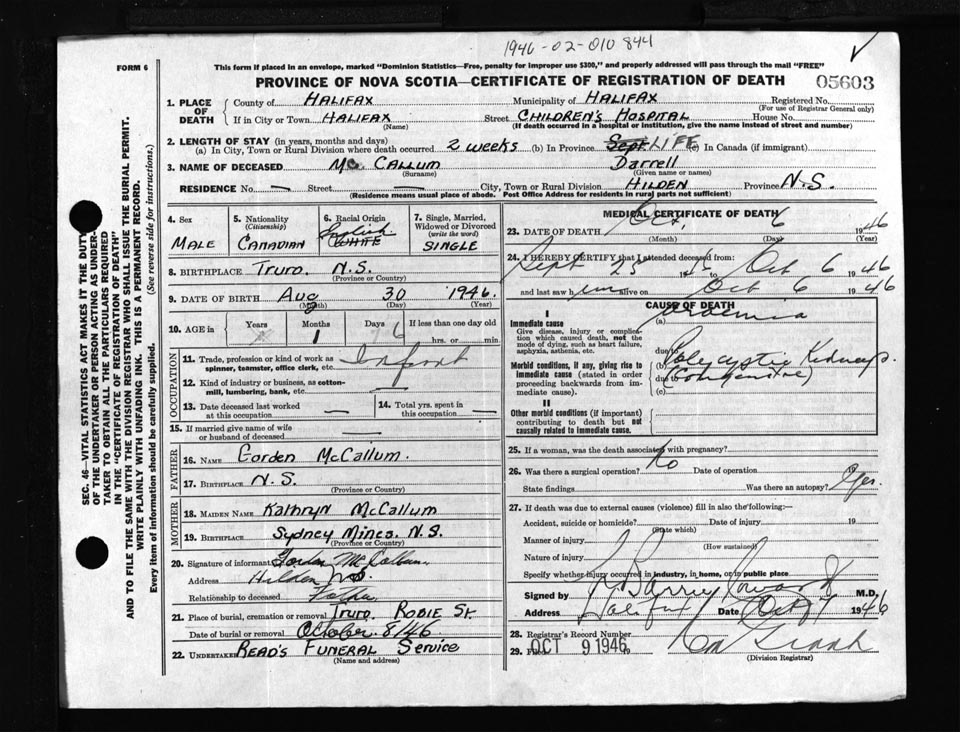 1946-02-010 844
FORM 6
This form if placed in an envelope, marked "Dominion Statistics—Free, penalty for improper use $300," and properly addressed will pass through the mail "FREE"
PROVINCE OF NOVA SCOTIA—CERTIFICATE OF REGISTRATION OF DEATH
05603
SEC. 46—VITAL STATISTICS ACT MAKES IT THE DUTY
OF THE UNDERTAKER OR PERSON ACTING AS UNDER-
TAKER TO OBTAIN ALL THE PARTICULARS REQUIRED
IN THE "CERTIFICATE OF REGISTRATION OF DEATH"
AND TO FILE THE SAME WITH THE DIVISION REGISTRAR WHO SHALL ISSUE THE BURIAL PERMIT.
WRITE PLAINLY WITH UNFADING INK. THIS IS A PERMANENT RECORD.
Every item of information should be carefully supplied. (See reverse side for instructions.)
1. PLACE OF DEATH
County of HALIFAX Municipality of HALIFAX Registered No.
(For use of Registrar General only)
If in City or Town HALIFAX Street CHILDREN'S HOSPITAL House No.
(Name) (If death occurred in a hospital or institution, give the name instead of street and number)
2. LENGTH OF STAY (in years, months and days)
(a) In City, Town or Rural Division where death occurred 2 WEEKS (b) In Province Sept LIFE (c) In Canada (if immigrant)
3. NAME OF DECEASED Mc CALLUM Darrell
(Surname) (Given name or names)
RESIDENCE No. — Street — City, Town or Rural Division HILDEN Province N.S.
(Residence means usual place of abode. Post Office Address for residents in rural parts not sufficient)
4. Sex
MALE
5. Nationality
(Citizenship)
CANADIAN
6. Racial Origin
English
WHITE
7. Single, Married,
Widowed or Divorced
(write the word)
SINGLE
8. BIRTHPLACE Truro. N.S.
(Province or Country)
9. DATE OF BIRTH Aug 30 1946.
(Month) (Day) (Year)
10. AGE in Years Months Days If less than one day old
1 6 hrs. or min.
OCCUPATION
11. Trade, profession or kind of work as
spinner, teamster, office clerk, etc. Infant
12. Kind of industry or business, as cotton-
mill, lumbering, bank, etc. —
13. Date deceased last worked
at this occupation —
14. Total yrs. spent in
this occupation —
15. If married give name of wife
or husband of deceased —
FATHER
16. NAME Gorden McCallum.
17. BIRTHPLACE N.S.
(Province or Country)
MOTHER
18. MAIDEN NAME Kathryn McCallum
19. BIRTHPLACE Sydney Mines. N.S.
(Province or Country)
20. Signature of informant Gordon McCallum
Address Hilden N.S.
Relationship to deceased Father
21. Place of burial, cremation or removal Truro, Robie St.
Date of burial or removal October. 8/46
22. UNDERTAKER READ'S FUNERAL SERVICE
(Name and address)
MEDICAL CERTIFICATE OF DEATH
23. DATE OF DEATH Oct. 6 1946
(Month) (Day) (Year)
24. I HEREBY CERTIFY that I attended deceased from:
Sept 25 1946 to Oct 6 1946
and last saw him alive on Oct 6 1946
CAUSE OF DEATH
I
Immediate cause (a) Uraemia
Give disease, injury or complica-
tion which caused death, not the
mode of dying, such as heart failure,
asphyxia, asthenia, etc.
due to
Morbid conditions, if any, giving rise to
immediate cause (stated in order
proceeding backwards from im-
mediate cause).
(b) Polycystic Kidneys.
due to (Congenital)
(c)
II
Other morbid conditions (if important)
contributing to death but not
causally related to immediate cause.
25. If a woman, was the death associated with pregnancy?
26. Was there a surgical operation? No Date of operation
State findings Was there an autopsy? Yes.
27. If death was due to external causes (violence) fill in also the following:—
Accident, suicide or homicide? Date of injury 19
(State which)
Manner of injury
(How sustained)
Nature of injury
Specify whether injury occurred in industry, in home, or in public place
Signed by M.D.
Address Halifax Date Oct 7 1946
28. Registrar's Record Number
29. Filed OCT 9 1946
(Division Registrar)